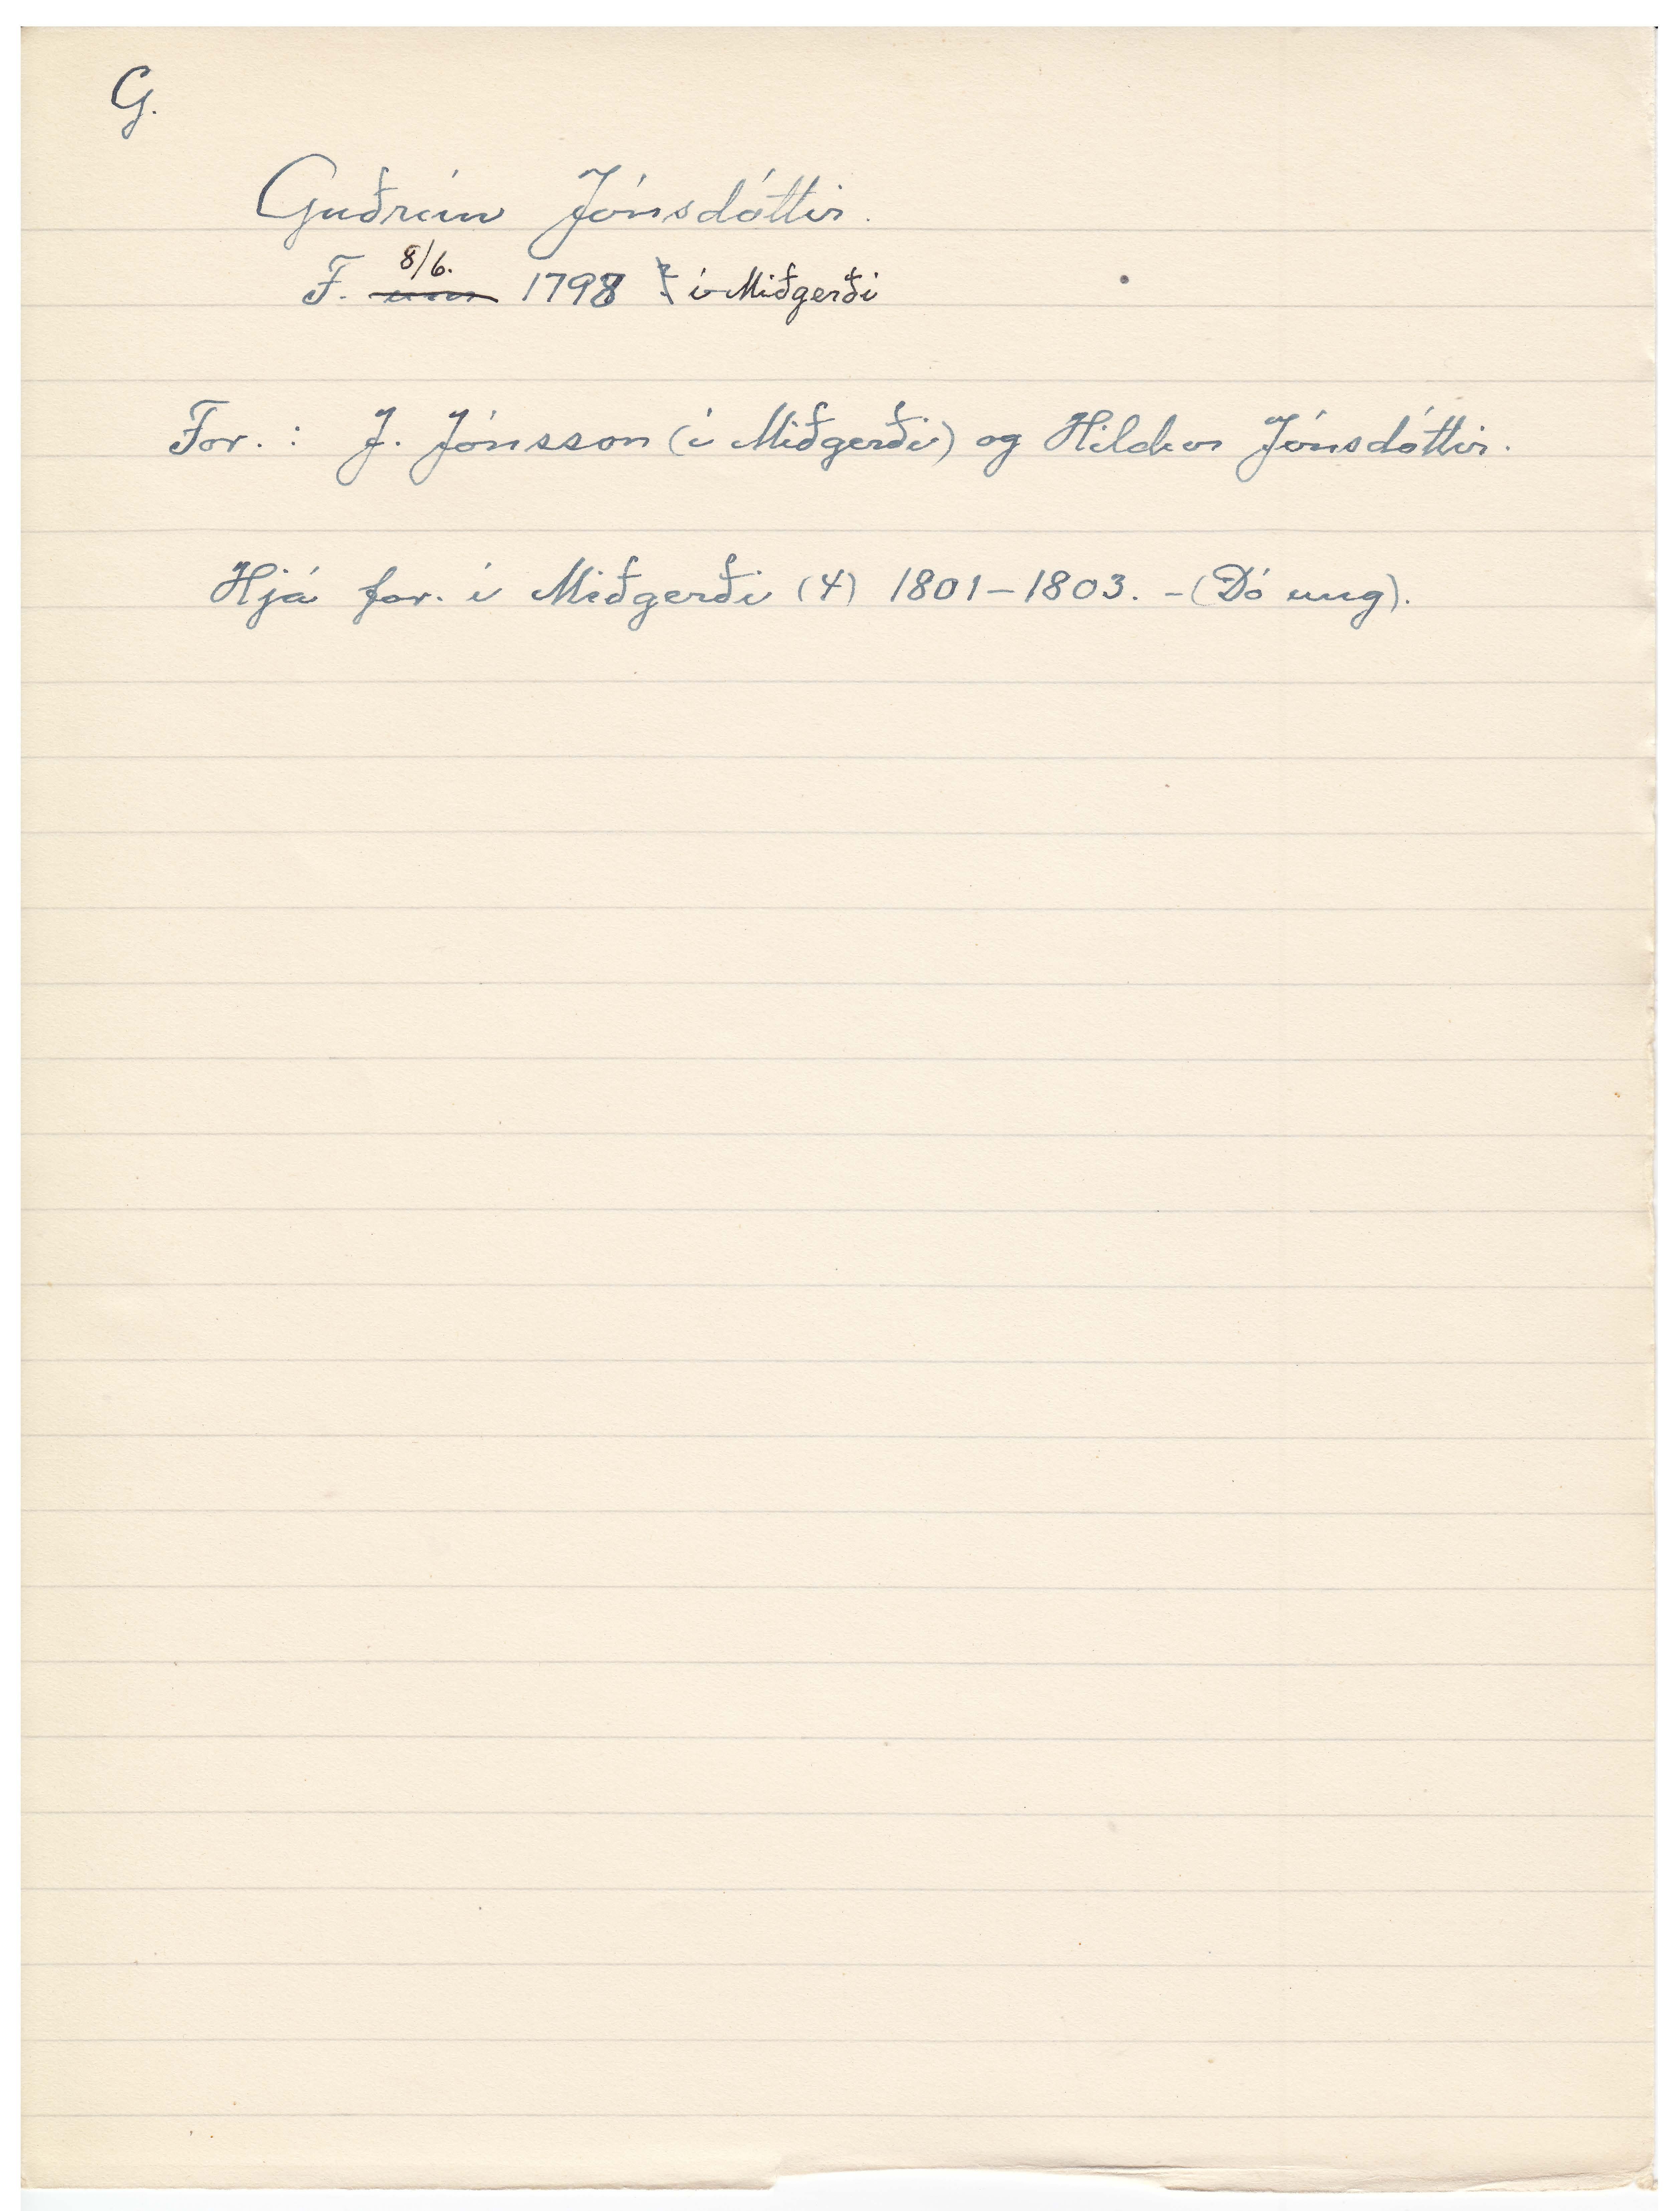 G.
Guðrún Jónsdóttir.
F. 8/6. 1798 í Miðgerði
For. : J. Jónsson (í Miðgerði) og Hildur Jónsdóttir.
Hjá for. í Miðgerði (4) 1801-1803. - (Dó ung).